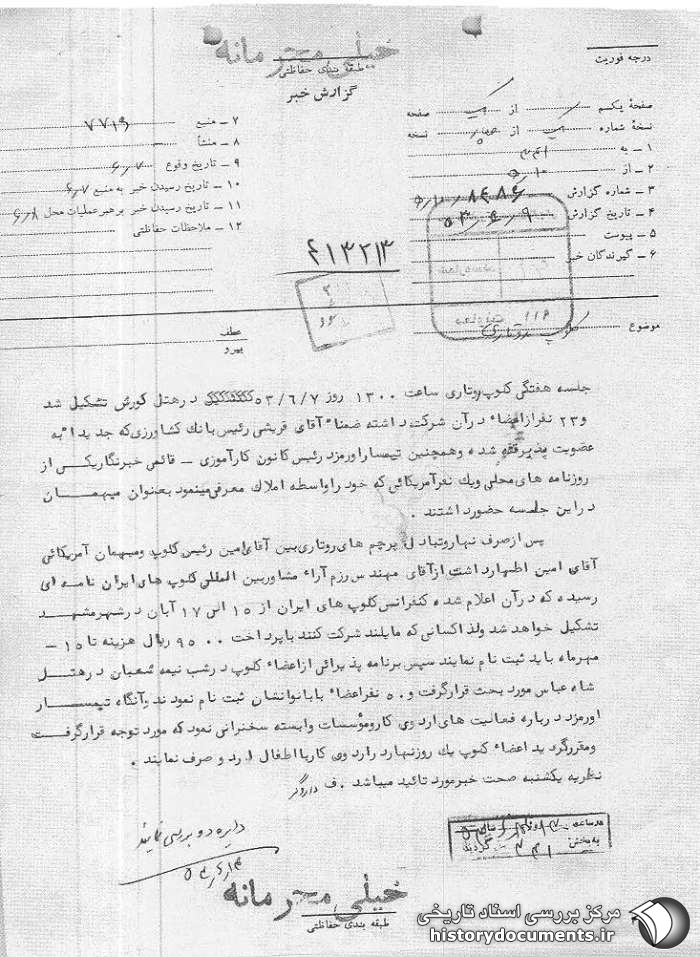 خیلی محرمانه
طبقه بندی حفاظتی
گزارش خبر
درجه فوریت
صفحهٔ یکم از یک صفحه
نسخهٔ شماره یک از چهار نسخه
۱ ـ به
۲ ـ از
۳ ـ شماره گزارش
۴ ـ تاریخ گزارش
۵ ـ پیوست
۶ ـ گیرندگان خبر
۷ ـ منبع ۷۷۱۹
۸ ـ منشأ
۹ ـ تاریخ وقوع ۶٫۷
۱۰ ـ تاریخ رسیدن خبر به منبع ۶٫۷
۱۱ ـ تاریخ رسیدن خبر برهبر عملیات محل ۶٫۸
۱۲ ـ ملاحظات حفاظتی
۴۱۳۲۱۳
موضوع کلوپ روتاری
عطف
پیرو
جلسه هفتگی کلوپ روتاری ساعت ۱۳۰۰ روز ۵۳/۶/۷ در هتل کورش تشکیل شد
و ۲۳ نفر از اعضاء در آن شرکت داشته ضمناً آقای قریشی رئیس بانک کشاورزی که جدیداً به
عضویت پذیرفته شده وهمچنین تیمسار اورمزد رئیس کانون کارآموزی ـ قائمی خبرنگار یکی از
روزنامه های محلی ویک نفر آمریکائی که خود را واسطه املاک معرفی مینمود بعنوان میهمان
در این جلسه حضور داشتند .
پس از صرف نهار وتبادل پرچم های روتاری بین آقای امین رئیس کلوپ ومیهمان آمریکائی
آقای امین اظهار داشت از آقای مهندس رزم آراء مشاور بین المللی کلوپ های ایران نامه ای
رسیده که در آن اعلام شده کنفرانس کلوپ های ایران از ۱۵ الی ۱۷ آبان در شهر مشهد
تشکیل خواهد شد ولذا کسانی که مایلند شرکت کنند با پرداخت ۹۵۰۰ ریال هزینه تا ۱۵ ـ
مهرماه باید ثبت نام نمایند سپس برنامه پذیرائی از اعضاء کلوپ در شب نیمه شعبان در هتل
شاه عباس مورد بحث قرار گرفت و ۵۰ نفر اعضاء با بانوانشان ثبت نام نمودند وآنگاه تیمسار
اورمزد در باره فعالیت های اردوی کار ومؤسسات وابسته سخنرانی نمود که مورد توجه قرار گرفت
ومقرر گردید اعضاء کلوپ یک روز نهار در اردوی کار با اطفال اردو صرف نمایند .
نظریه یکشنبه صحت خبر مورد تائید میباشد . ف دادگر
دایره دو بررسی نمایند
در ساعت
به بخش گردید
خیلی محرمانه
طبقه بندی حفاظتی
مرکز بررسی اسناد تاریخی
historydocuments.ir